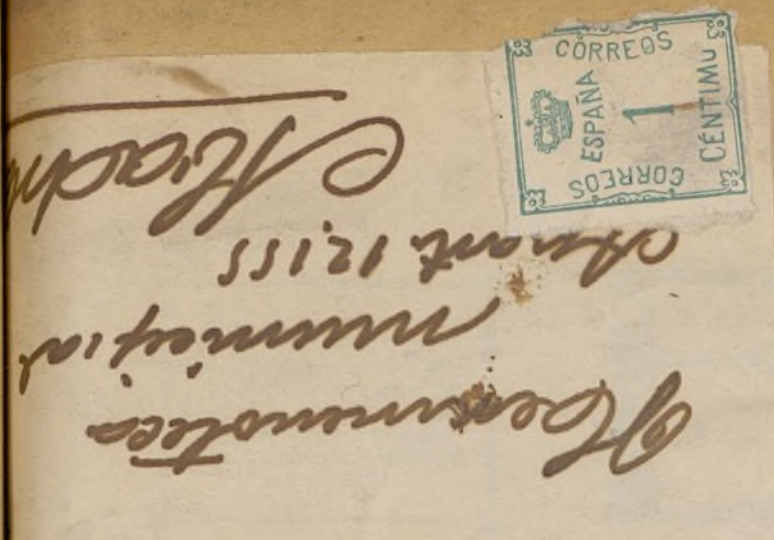 CORREOS
ESPAÑA
1
CÉNTIMO
CORREOS
Hemeroteca
municipal
Apart. 12,155